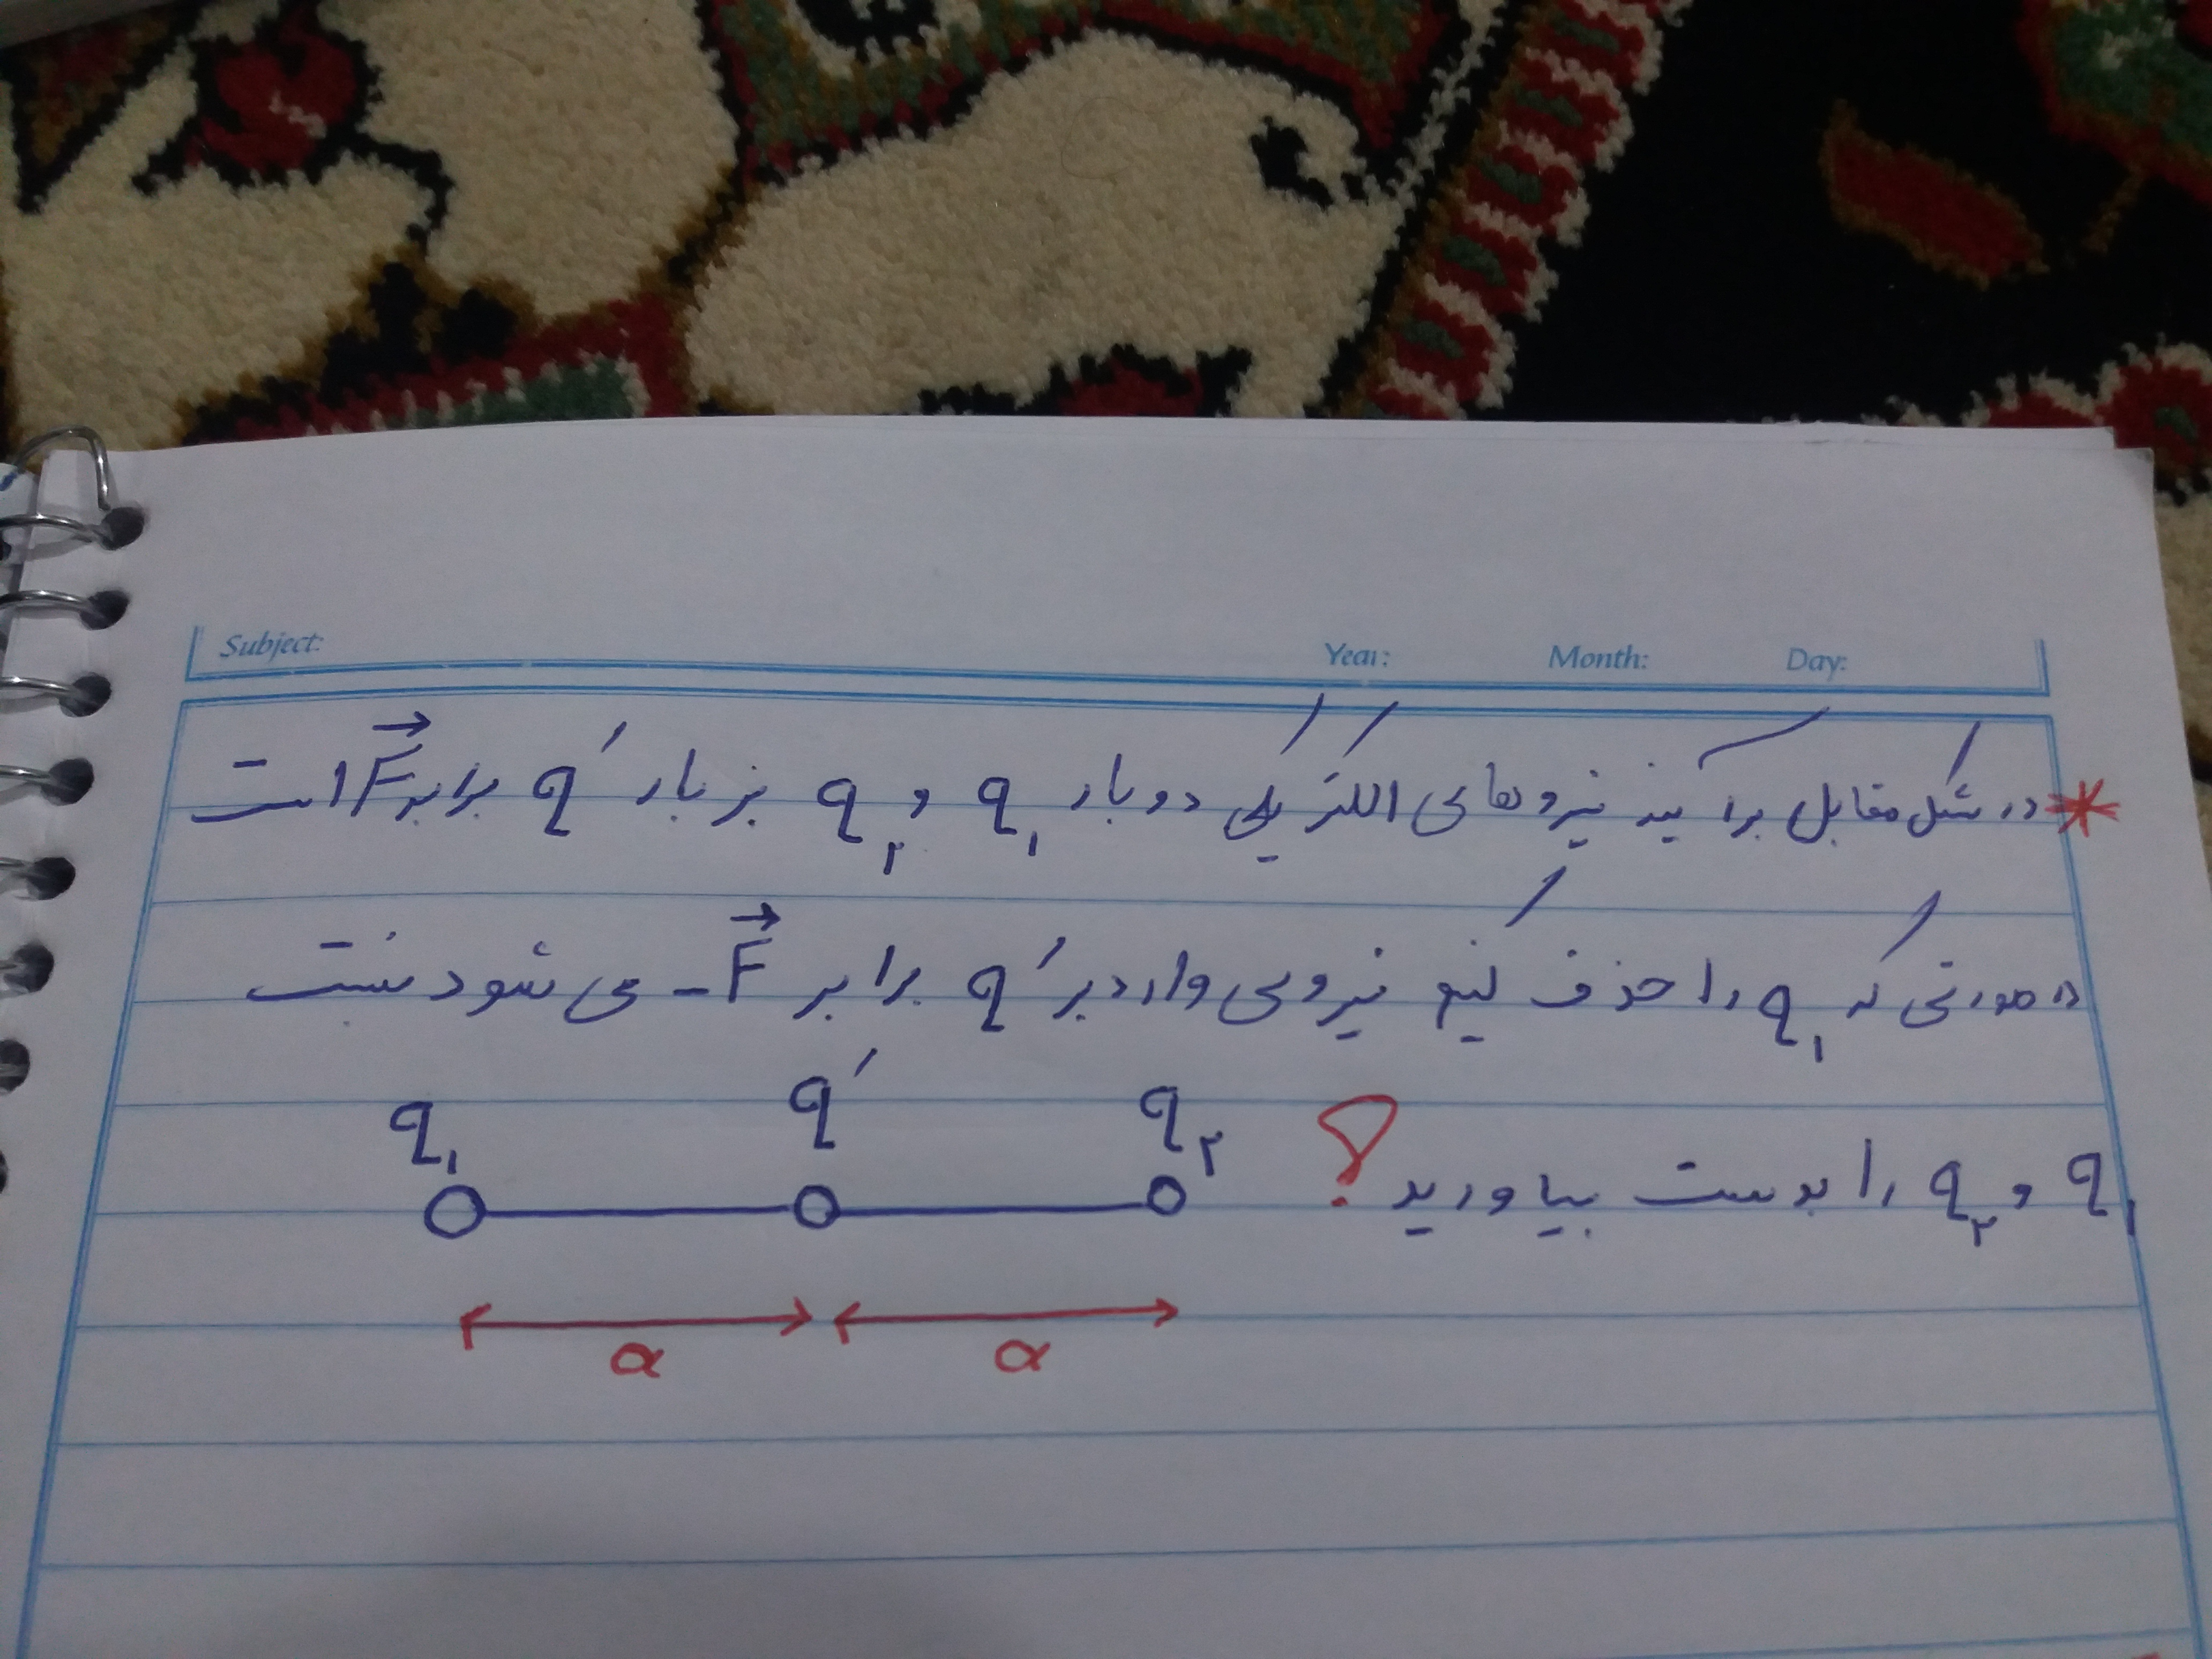 Subject: Year: Month: Day:
* در شکل مقابل برآیند نیروهای الکتریکی دو بار q₁ و q₂ بر بار q′ برابر F⃗ است
در صورتی که q₁ را حذف کنیم نیروی وارد بر q′ برابر F⃗- می شود نسبت
q₁ و q₂ را بدست بیاورید ؟
q₁ q′ q₂
a a